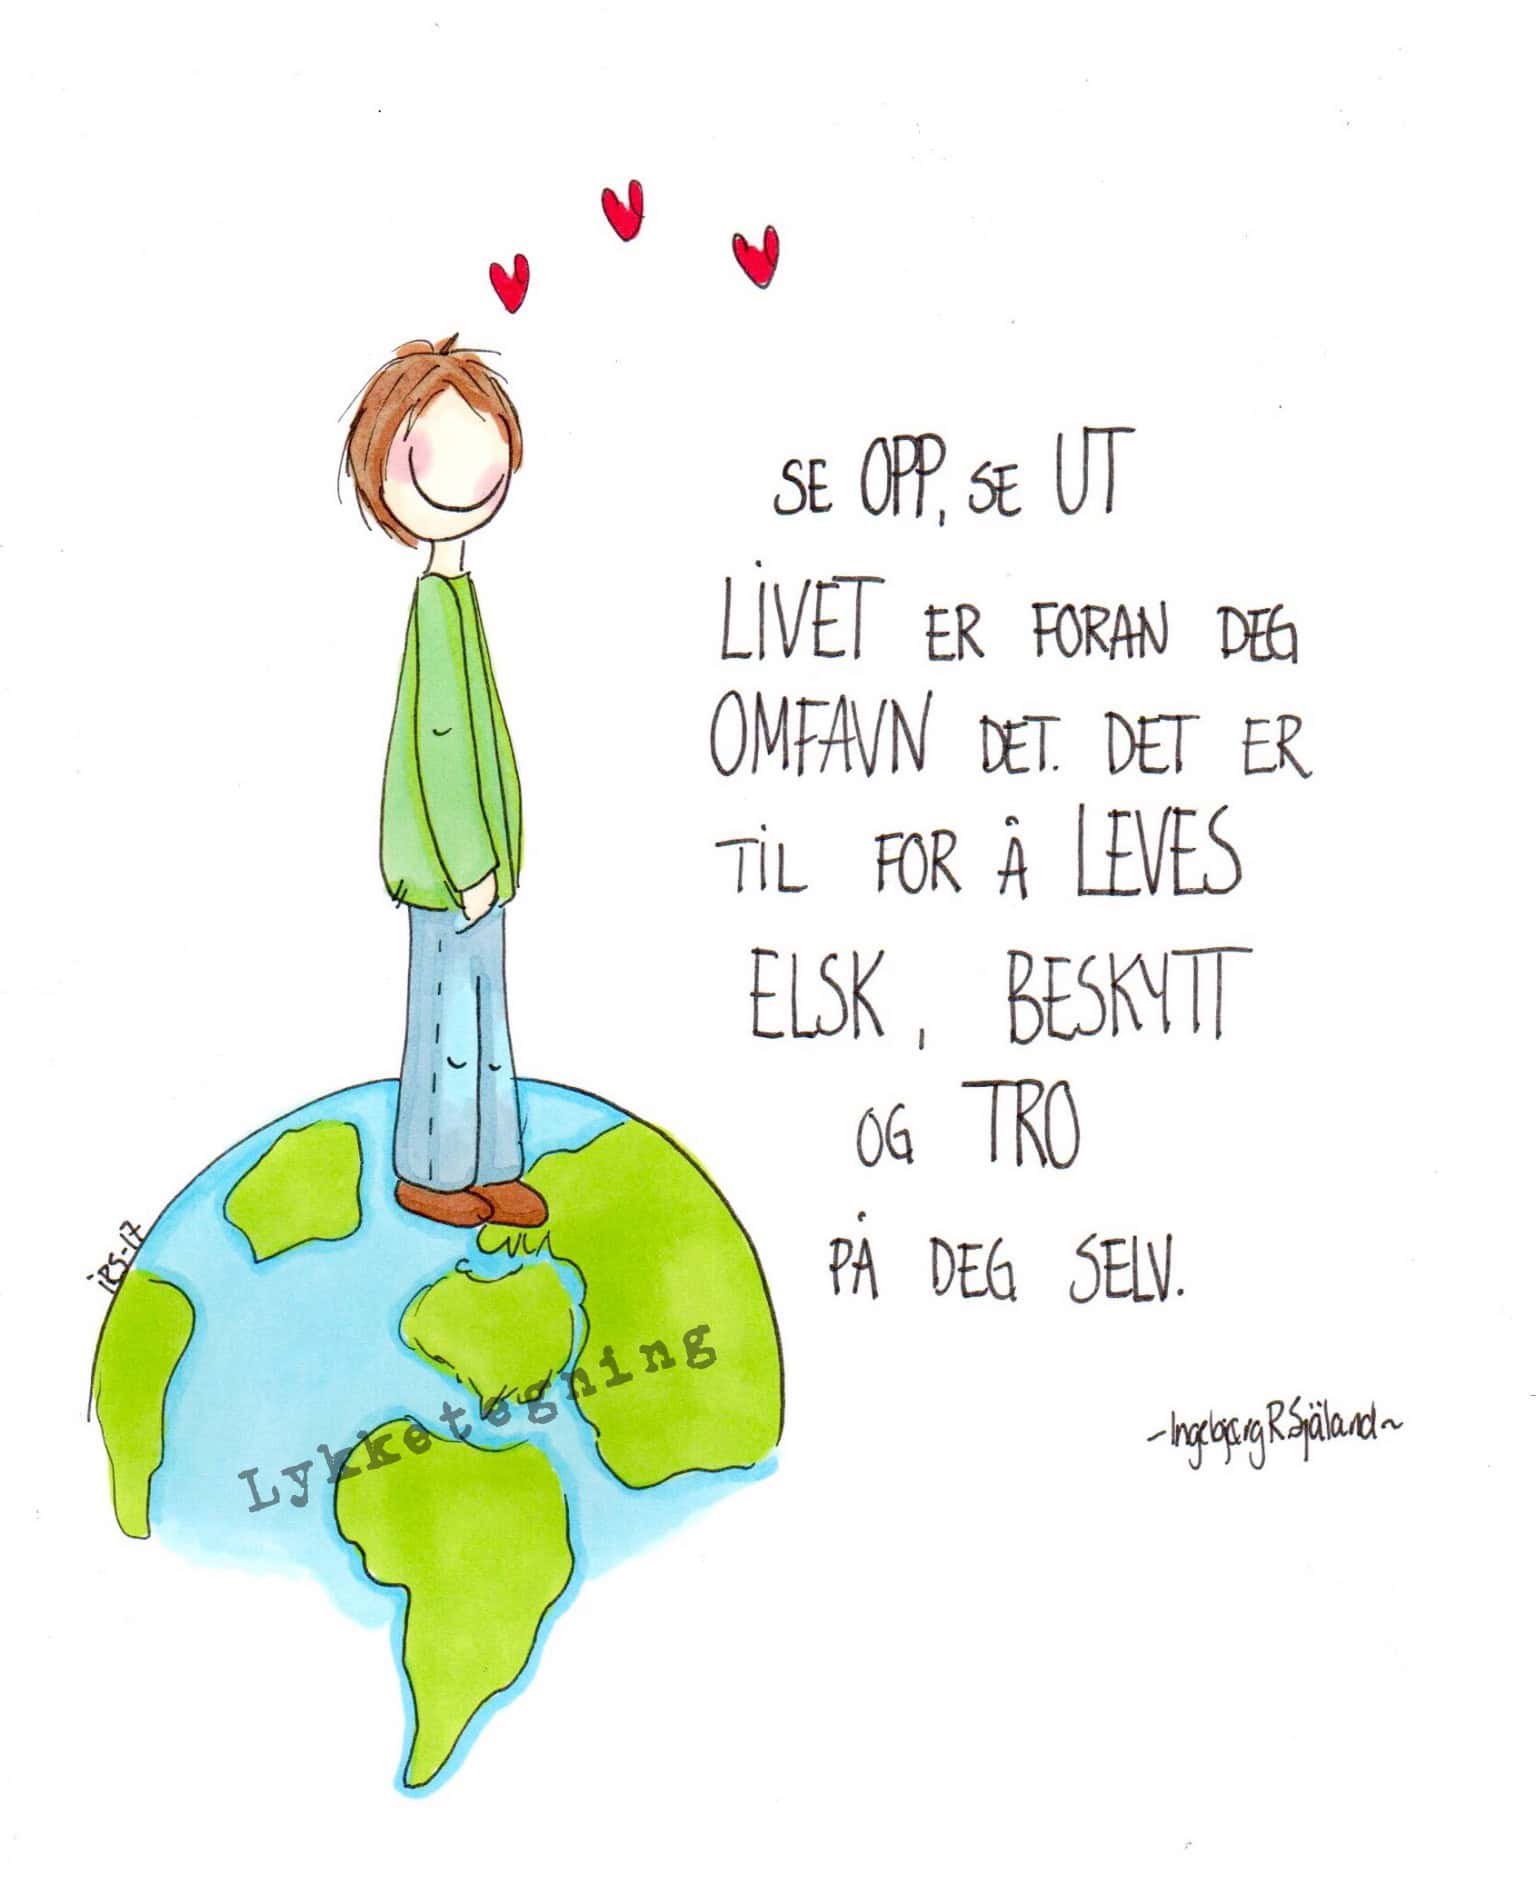 SE OPP, SE UT
LIVET ER FORAN DEG
OMFAVN DET. DET ER
TIL FOR Å LEVES
ELSK, BESKYTT
OG TRO
PÅ DEG SELV.
iRS-17
Lykketegning
~Ingebjørg R. Själand~